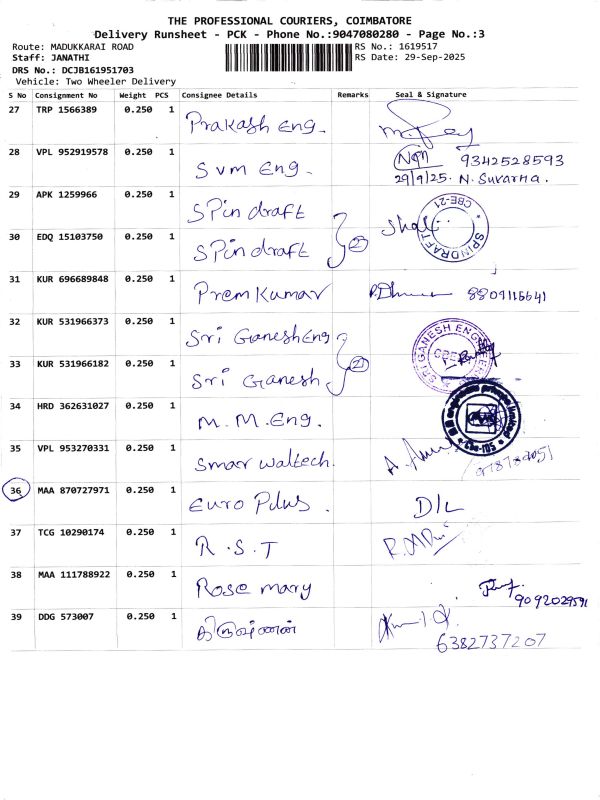 THE PROFESSIONAL COURIERS, COIMBATORE
Delivery Runsheet - PCK - Phone No.:9047080280 - Page No.:3
Route: MADUKKARAI ROAD
RS No.: 1619517
Staff: JANATHI
RS Date: 29-Sep-2025
DRS No.: DCJB161951703
Vehicle: Two Wheeler Delivery
S No Consignment No Weight PCS Consignee Details Remarks Seal & Signature
27 TRP 1566389 0.250 1 Prakash Eng.
28 VPL 952919578 0.250 1 Svm Eng. 9342528593
29/9/25. N. Suvarna.
29 APK 1259966 0.250 1 Spin draft
30 EDQ 15103750 0.250 1 Spin draft 2 SPINDRAFT CBE-21
31 KUR 696689848 0.250 1 Prem Kumar
32 KUR 531966373 0.250 1 Sri Ganesh Eng
33 KUR 531966182 0.250 1 Sri Ganesh 2 SRI GANESH
34 HRD 362631027 0.250 1 M.M.Eng.
35 VPL 953270331 0.250 1 Smar waltech.
36 MAA 870727971 0.250 1 Euro Plus. D/L
37 TCG 10290174 0.250 1 R.S.T
38 MAA 111788922 0.250 1 Rose mary 9092029591
39 DDG 573007 0.250 1 6382737207